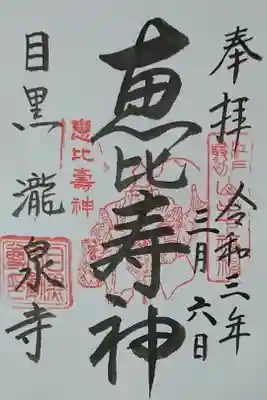 奉拝 令和三年
三月六日
恵比寿神
恵比壽神
目黒 瀧泉寺